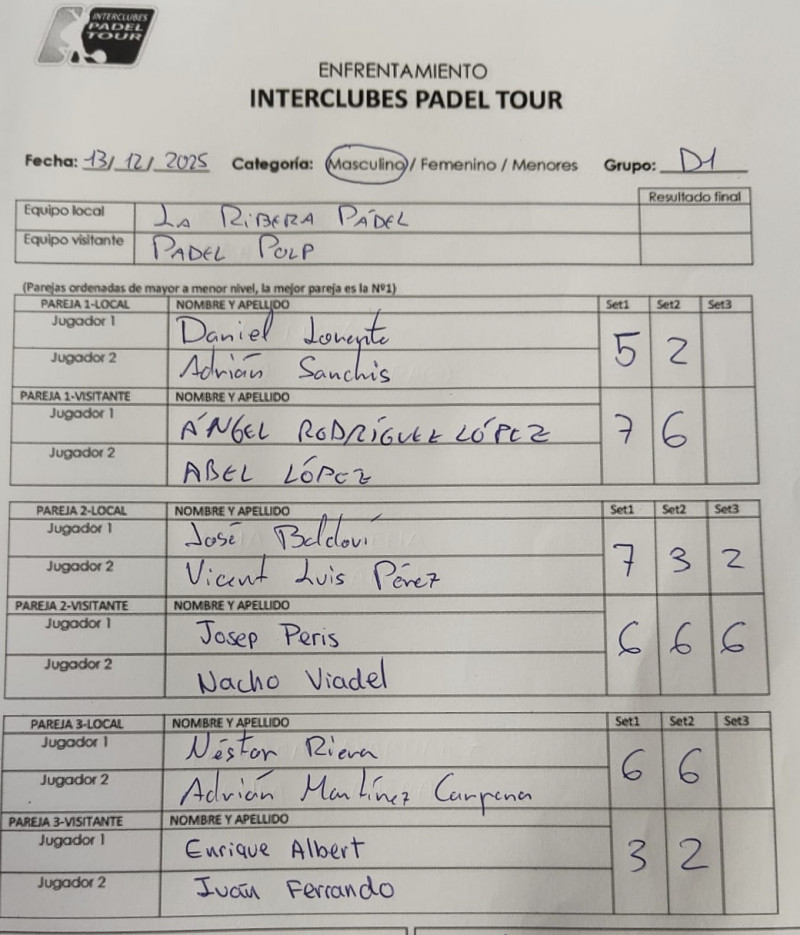 INTERCLUBES
PADEL
TOUR
ENFRENTAMIENTO
INTERCLUBES PADEL TOUR
Fecha: 13/12/2025 Categoría: Masculino / Femenino / Menores Grupo: D1
Resultado final
Equipo local LA RIBERA PÁDEL
Equipo visitante PADEL POLP
(Parejas ordenadas de mayor a menor nivel, la mejor pareja es la Nº1)
PAREJA 1-LOCAL NOMBRE Y APELLIDO Set1 Set2 Set3
Jugador 1 Daniel Lorente
5 2
Jugador 2 Adrián Sanchis
PAREJA 1-VISITANTE NOMBRE Y APELLIDO
Jugador 1 ÁNGEL RODRÍGUEZ LÓPEZ
7 6
Jugador 2 ABEL LÓPEZ
PAREJA 2-LOCAL NOMBRE Y APELLIDO Set1 Set2 Set3
Jugador 1 José Baldoví
7 3 2
Jugador 2 Vicent Luis Pérez
PAREJA 2-VISITANTE NOMBRE Y APELLIDO
Jugador 1 Josep Peris
6 6 6
Jugador 2 Nacho Viadel
PAREJA 3-LOCAL NOMBRE Y APELLIDO Set1 Set2 Set3
Jugador 1 Néstor Riera
6 6
Jugador 2 Adrián Martínez Carpena
PAREJA 3-VISITANTE NOMBRE Y APELLIDO
Jugador 1 Enrique Albert
3 2
Jugador 2 Iván Ferrando